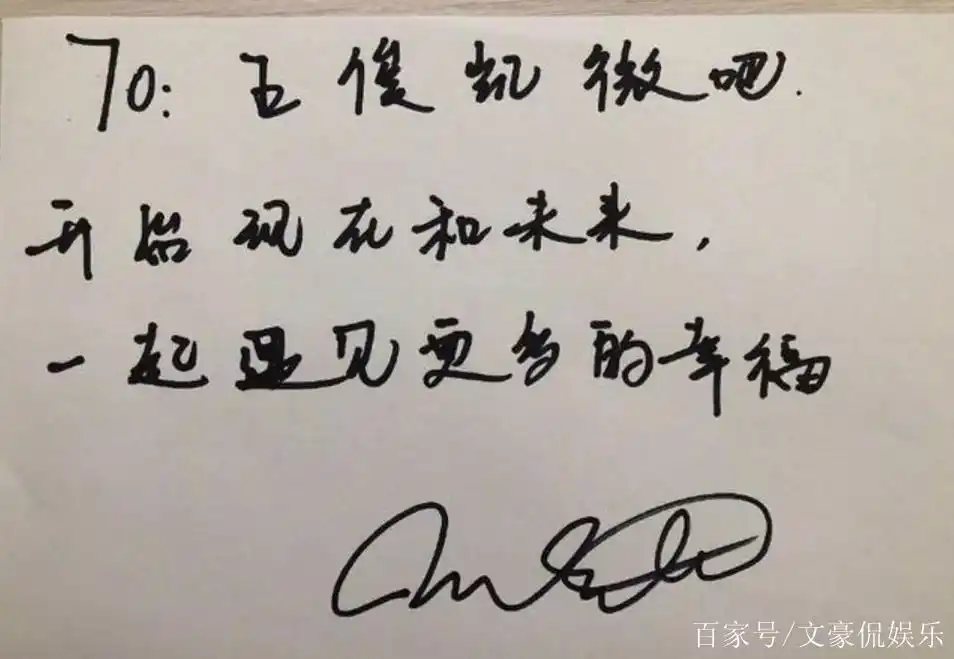 TO：王俊凯微吧．
开始现在和未来，
一起遇见更多的幸福
百家号/文豪侃娱乐